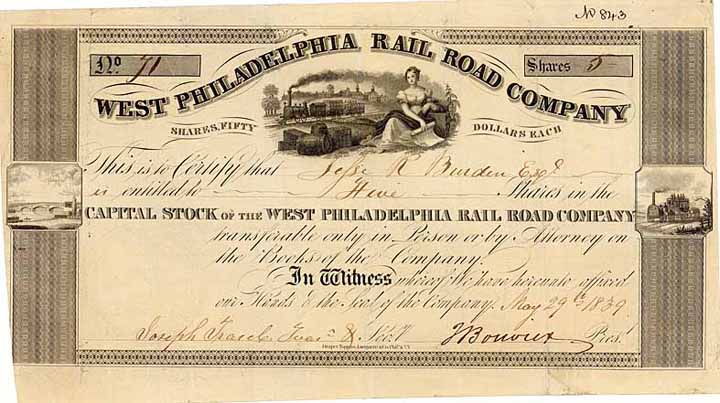 No 843
No. 71
Shares 5
WEST PHILADELPHIA RAIL ROAD COMPANY
SHARES, FIFTY DOLLARS EACH
This is to Certify that Jesse R Burden Esqr
is entitled to Five Shares in the
CAPITAL STOCK OF THE WEST PHILADELPHIA RAIL ROAD COMPANY
transferable only in Person or by Attorney on
the Books of the Company.
In Witness whereof We have hereunto affixed
our Hands & the Seal of the Company, May 29th 1839
Joseph & Secy. Prest.